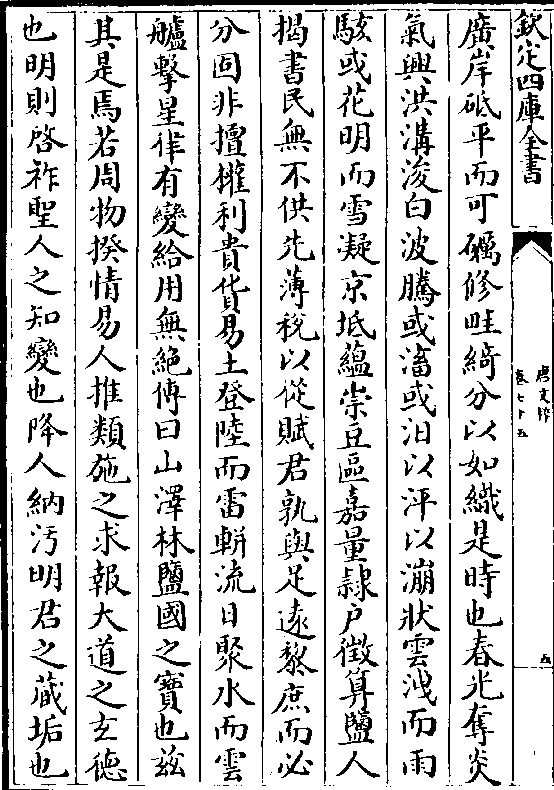 欽定四庫全書
唐文粹
卷七十五
五
廣岸砥平而可礪修畦綺分以如織是時也春光奪炎
氣興洪溝浚白波騰或潏或汨以泙以漰狀雲洩而雨
駭或花明而雪凝京坻蘊崇豆區嘉量隸户徵算鹽人
揭書民無不供先薄稅以從賦君孰與足遠黎庶而必
分固非擅攉利貴貨易土登陸而雷軿流日聚水而雲
艫擊星律有變給用無絶傳曰山澤林鹽國之寶也兹
其是焉若周物揆情易人推類施之求報大道之玄德
也明則啓祚聖人之知變也降人納污明君之藏垢也